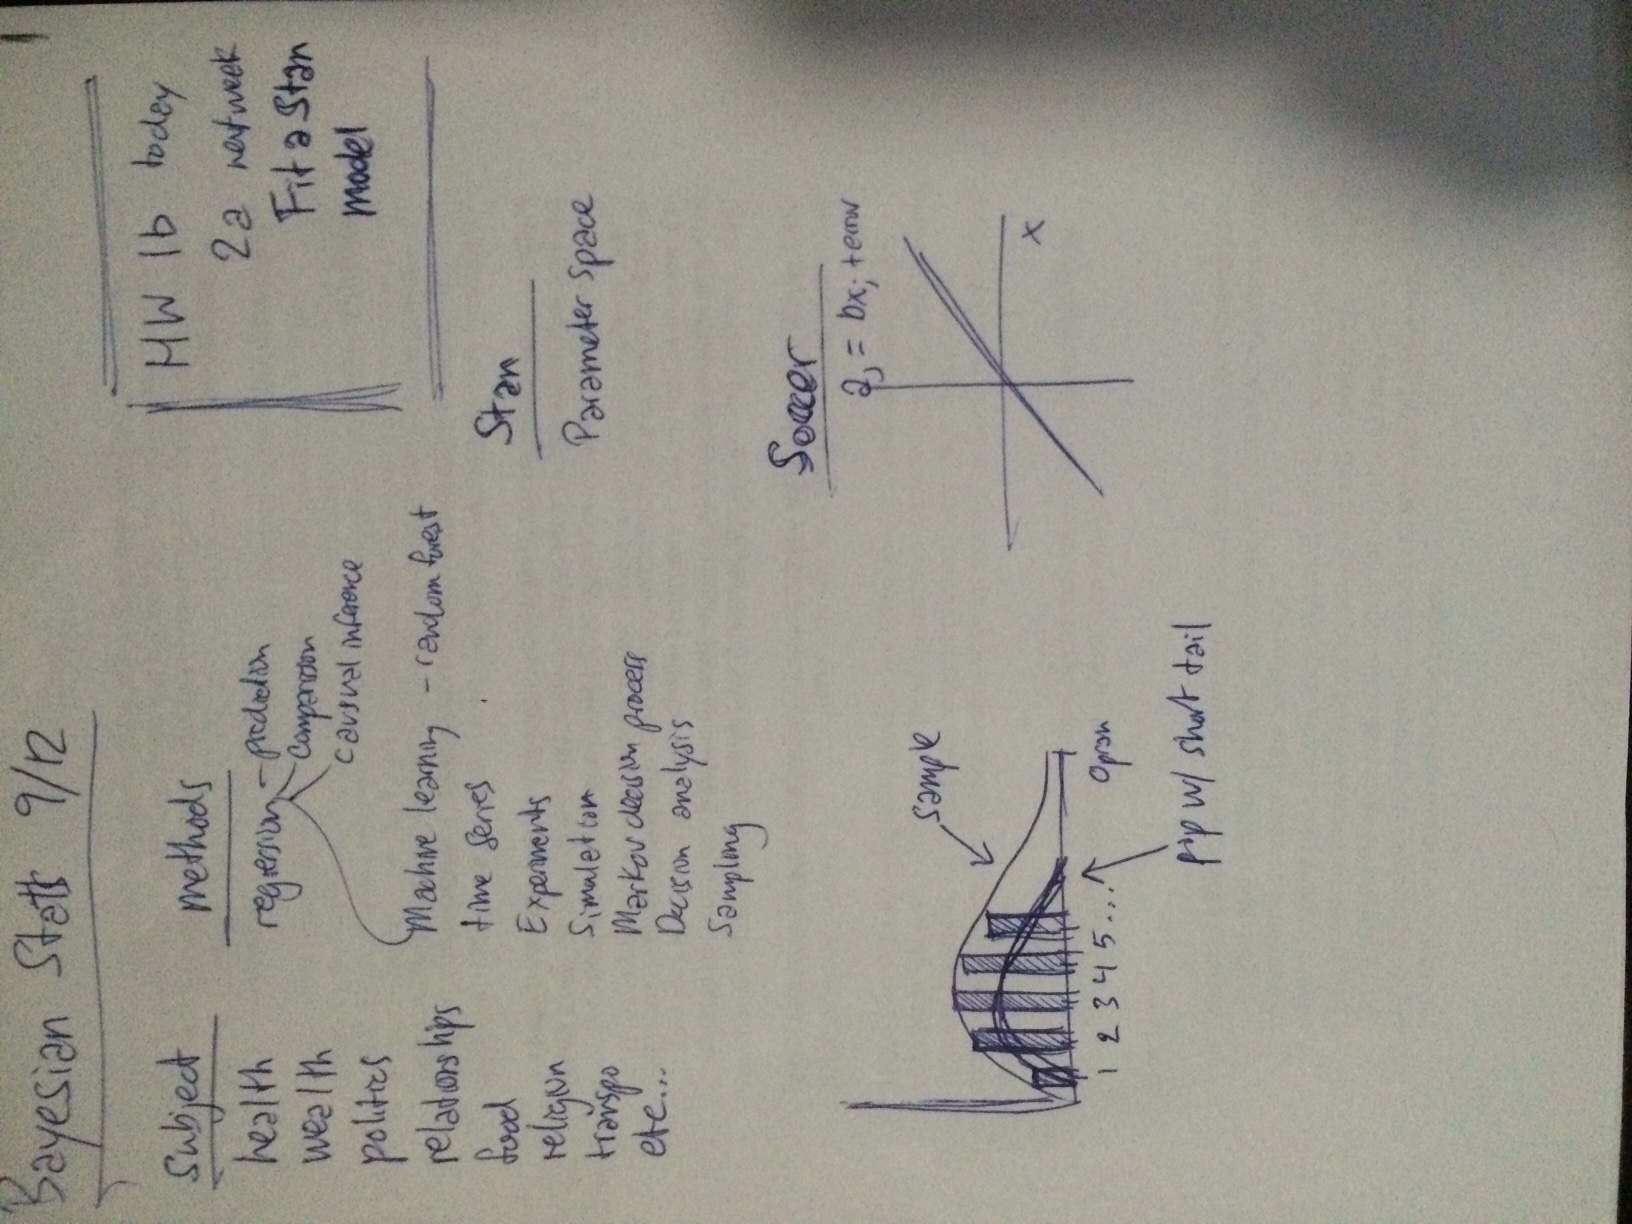 Bayesian Stats 9/12
1
Subject
health
wealth
politics
relationships
food
religion
transpo
etc...
methods
regression - prediction
comparison
causual inference
Machine learning - random forest
time series
Experiments
Simulation
Markov decision process
Decision analysis
Sampling
HW 1b today
2a next week
Fit a Stan
model
Stan
Parameter space
Soccer
aj = bxj + error
x
sample
1 2 3 4 5 ...
pop w/ short tail